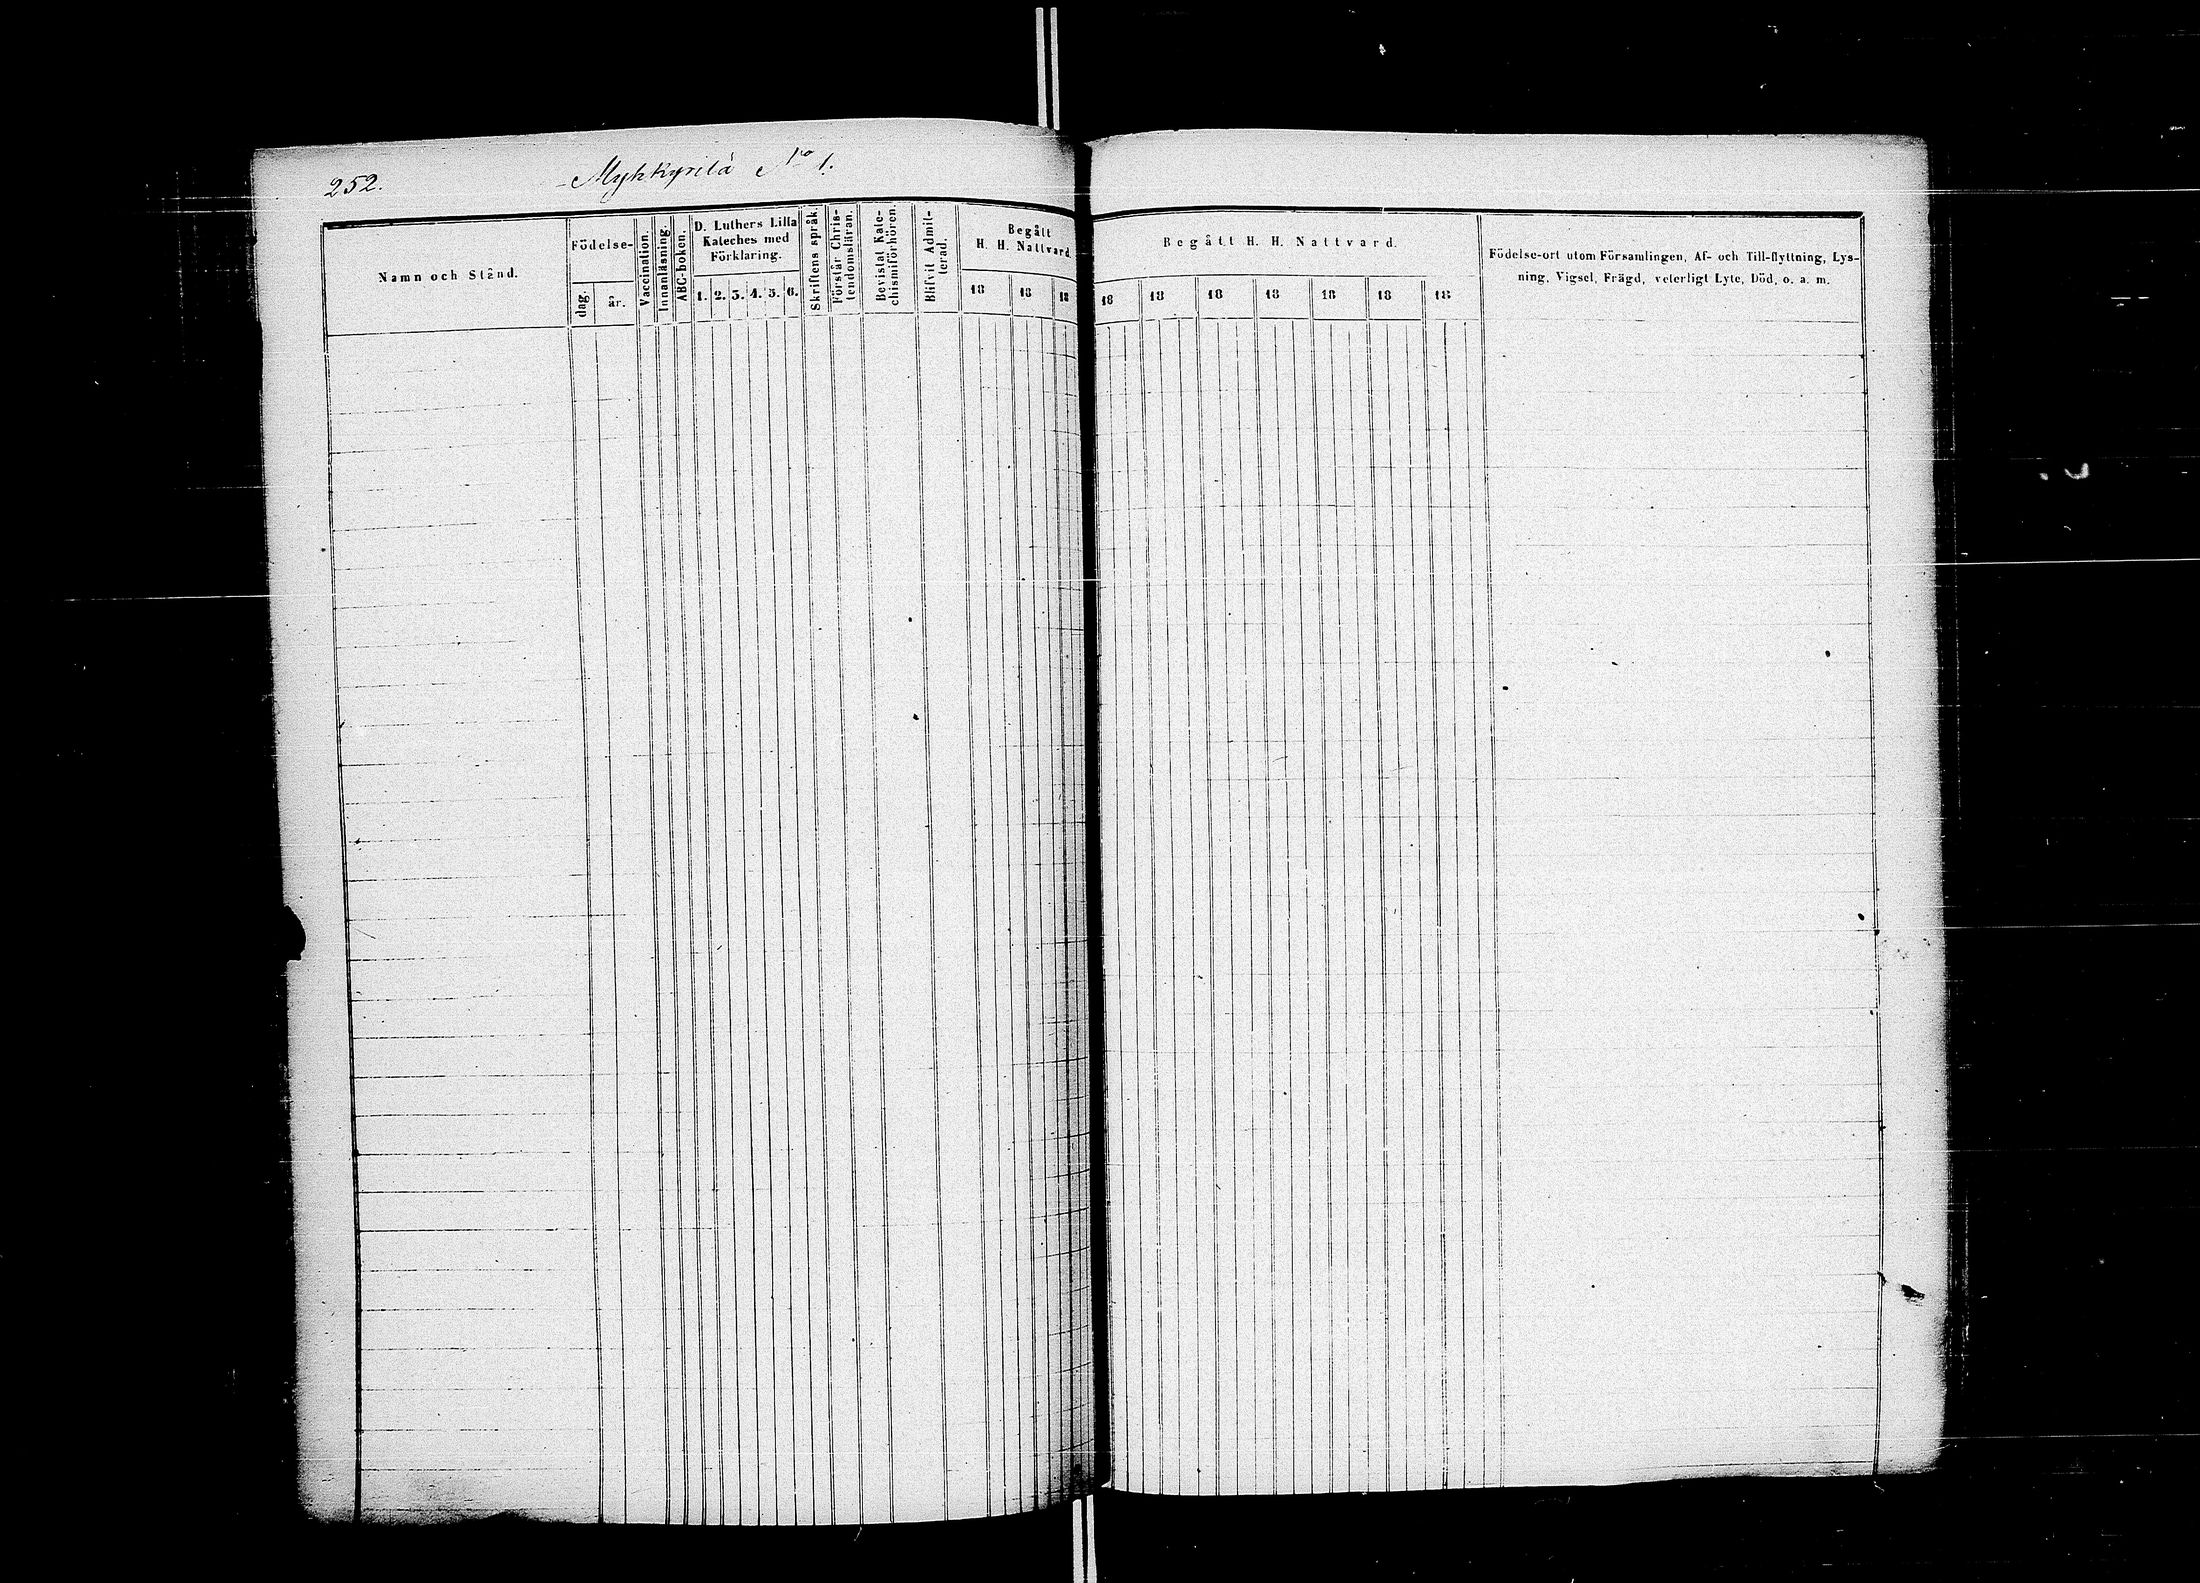 252.
Mykkyrilä No 1.
Namn och Stånd.
Födelse-
dag.
år.
Vaccination.
Innanläsning.
ABC-boken.
D. Luthers Lilla
Kateches med
Förklaring.
1. 2. 3. 4. 5. 6.
Skriftens språk.
Förstår Chris-
tendomsläran.
Bevistat Kate-
chismiförhören.
Blifvit Admit-
terad.
Begått
H. H. Nattvard.
18 18 18
Begått H. H. Nattvard.
18 18 18 18 18 18 18
Födelse-ort utom Församlingen, Af- och Till-flyttning, Lys-
ning, Vigsel, Frägd, veterligt Lyte, Död, o. a. m.